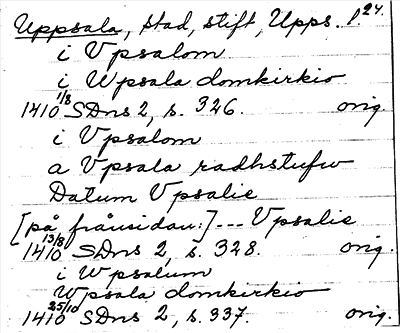 Uppsala, stad, stift, Upps. l. 24.
i Vpsalom
i Wpsala domkirkio
1410 1/8 SDns 2, s. 326. orig.
i Vpsalom
a Vpsala radhstufw
Datum Vpsalie
[på frånsidan:] --- Vpsalie
1410 13/8 SDns 2, s. 328. orig.
i Wpsalum
Wpsala domkirkio
1410 25/10 SDns 2, s. 337. orig.